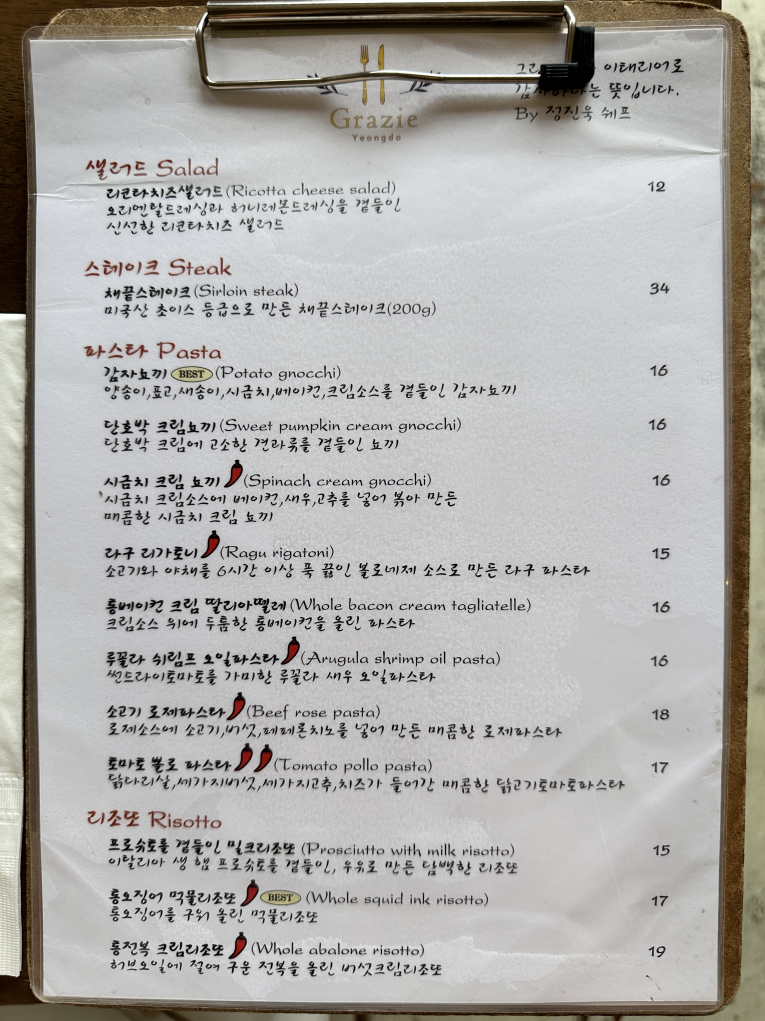 이태리어로
뜻입니다.
By 정진욱 쉐프
Grazie
Yeongdo
샐러드 Salad
리코타치즈샐러드(Ricotta cheese salad) 12
오리엔탈드레싱과 허니레몬드레싱을 곁들인
신선한 리코타치즈 샐러드
스테이크 Steak
채끝스테이크(Sirloin steak) 34
미국산 초이스 등급으로 만든 채끝스테이크(200g)
파스타 Pasta
감자뇨끼 BEST (Potato gnocchi) 16
양송이,표고,새송이,시금치,베이컨,크림소스를 곁들인 감자뇨끼
단호박 크림뇨끼(Sweet pumpkin cream gnocchi) 16
단호박 크림에 고소한 견과류를 곁들인 뇨끼
시금치 크림 뇨끼 (Spinach cream gnocchi) 16
시금치 크림소스에 베이컨,새우,고추를 넣어 볶아 만든
매콤한 시금치 크림 뇨끼
라구 리가토니 (Ragu rigatoni) 15
소고기와 야채를 6시간 이상 푹 끓인 볼로네제 소스로 만든 라구 파스타
통베이컨 크림 딸리아뗄레(Whole bacon cream tagliatelle) 16
크림소스 위에 두툼한 통베이컨을 올린 파스타
루꼴라 쉬림프 오일파스타 (Arugula shrimp oil pasta) 16
썬드라이토마토를 가미한 루꼴라 새우 오일파스타
소고기 로제파스타 (Beef rose pasta) 18
로제소스에 소고기,버섯,페페론치노를 넣어 만든 매콤한 로제파스타
토마토 뽈로 파스타 (Tomato pollo pasta) 17
닭다리살,세가지버섯,세가지고추,치즈가 들어간 매콤한 닭고기토마토파스타
리조또 Risotto
프로슈토를 곁들인 밀크리조또 (Prosciutto with milk risotto) 15
이탈리아 생 햄 프로슈토를 곁들인, 우유로 만든 담백한 리조또
통오징어 먹물리조또 BEST (Whole squid ink risotto) 17
통오징어를 구워 올린 먹물리조또
통전복 크림리조또 (Whole abalone risotto) 19
허브오일에 절여 구운 전복을 올린 버섯크림리조또